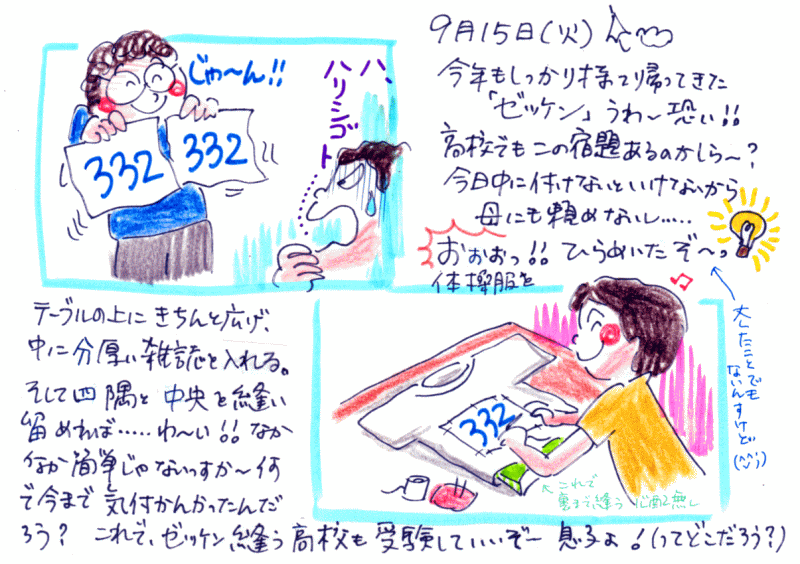 じゃ〜ん!!
332
332
ハ、
ハリシゴト……
9月15日(火)
今年もしっかり持って帰ってきた
「ゼッケン」うわ〜恐い!!
高校でもこの宿題あるのかしら〜?
今日中に付けないといけないから
母にも頼めないし……
おぉぉっ!! ひらめいたぞ〜っ
体操服を
テーブルの上にきちんと広げ、
中に分厚い雑誌を入れる。
そして四隅と中央を縫い
留めれば……わ〜い!!なか
なか簡単じゃないっすか〜何
で今まで気付かんかったんだ
ろう? これで、ゼッケン縫う高校も受験していいぞー 息子よ!(ってどこだろう?)
大したことでも
ないんすけど
(^^;)
332
←これで
裏まで縫う心配無し